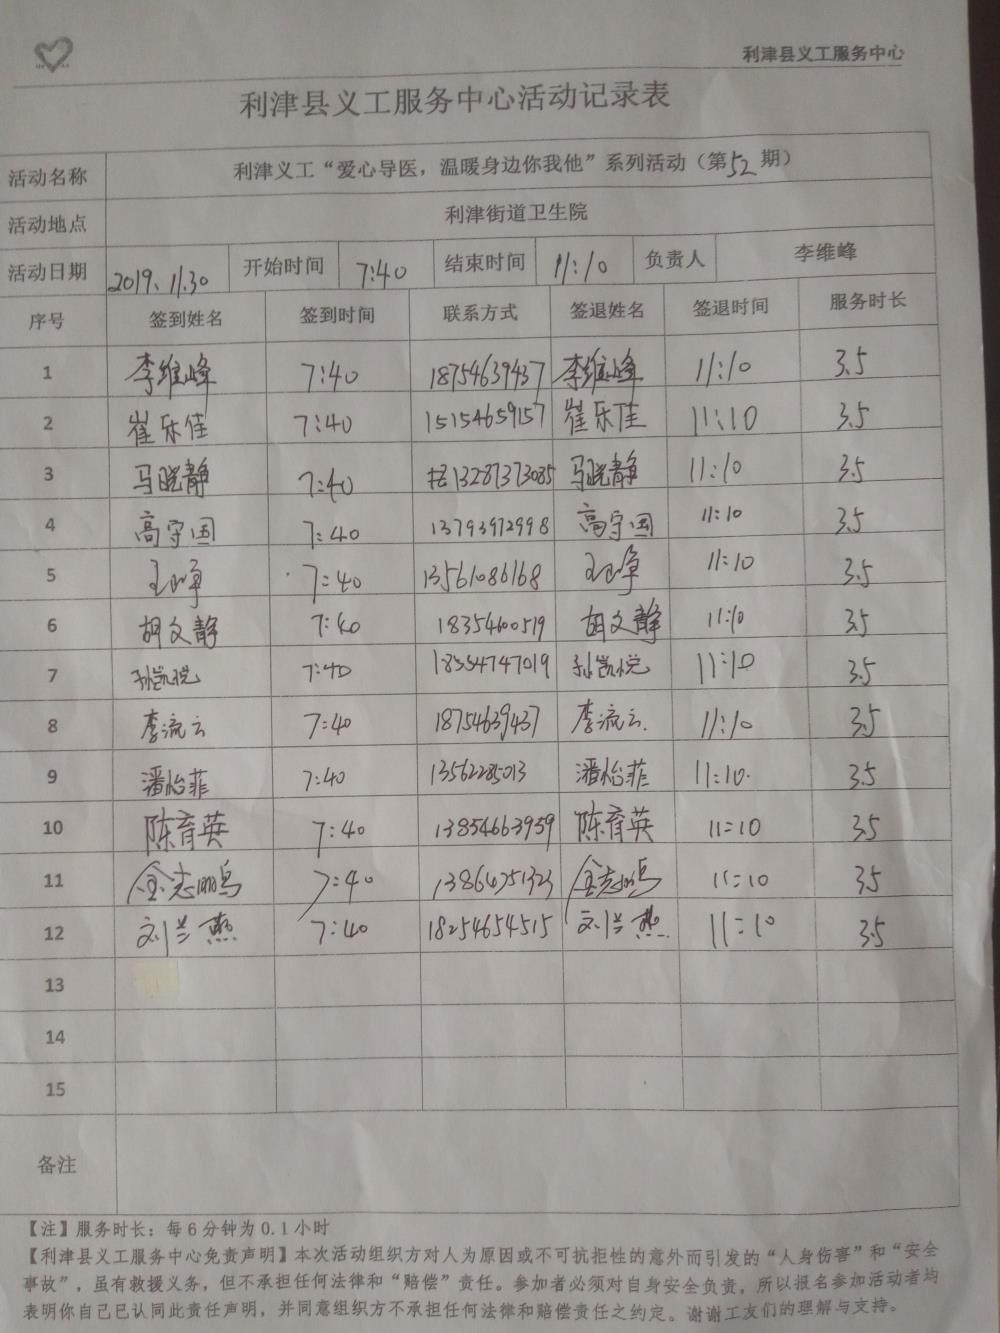 利津县义工服务中心
利津县义工服务中心活动记录表
活动名称 利津义工“爱心导医，温暖身边你我他”系列活动（第52期）
活动地点 利津街道卫生院
活动日期 2019.11.30 开始时间 7:40 结束时间 11:10 负责人 李维峰
序号 签到姓名 签到时间 联系方式 签退姓名 签退时间 服务时长
1 李维峰 7:40 18754639437 李维峰 11:10 3.5
2 崔乐佳 7:40 15154659157 崔乐佳 11:10 3.5
3 马晓静 7:40 13287373085 马晓静 11:10 3.5
4 高守国 7:40 13793972998 高守国 11:10 3.5
5 7:40 13561086168 11:10 3.5
6 胡文静 7:40 18354600519 胡文静 11:10 3.5
7 孙凯悦 7:40 18554747019 孙凯悦 11:10 3.5
8 李流云 7:40 18754639437 李流云 11:10 3.5
9 潘怡菲 7:40 13562285013 潘怡菲 11:10 3.5
10 陈育英 7:40 13854663959 陈育英 11:10 3.5
11 金志鹏 7:40 金志鹏 11:10 3.5
12 刘兰燕 7:40 18254654515 刘兰燕 11:10 3.5
13
14
15
备注
【注】服务时长：每6分钟为0.1小时
【利津县义工服务中心免责声明】本次活动组织方对人为原因或不可抗拒性的意外而引发的“人身伤害”和“安全
事故”，虽有救援义务，但不承担任何法律和“赔偿”责任。参加者必须对自身安全负责，所以报名参加活动者均
表明你自己已认同此责任声明，并同意组织方不承担任何法律和赔偿责任之约定。谢谢工友们的理解与支持。